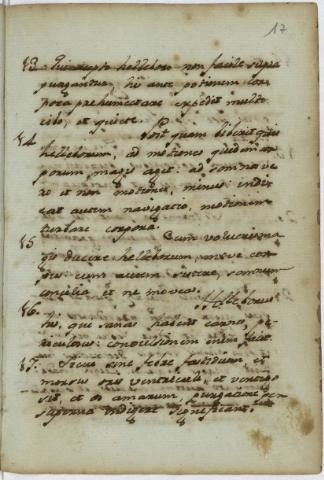 17
13. Qui accepto helleboro non facile supra
purgantur, his ante potionem cor
pora prehumectare expedit multo
cibo, et quiete.
14. Post quam biberit quis
helleborum, ad motiones quidem cor
porum magis agat: ad somnu ve
ro et non motiones, minus: indi
cat autem navigatio, motionem
turbare corpora.
15. Cum volueris ma
gis ducere helleborum, move cor
pus cum autem sistere, somnum
concilia et ne moveas.
16. Helleborus
his, qui sanas habent carnes, pe
riculosus: convulsionem enim facit.
17. Sicui sine febre fastidium, et
morsus oris ventriculi, et vertigo
sit, et os amarum, purgatione per
superna indigere significant.